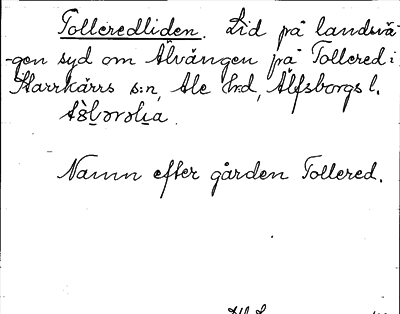 Tolleredliden. Lid på landsvä-
-gen syd om Älvängen på Tollered i
Starrkärrs s:n, Ale h:d, Älfsborgs l.
Namn efter gården Tollered.